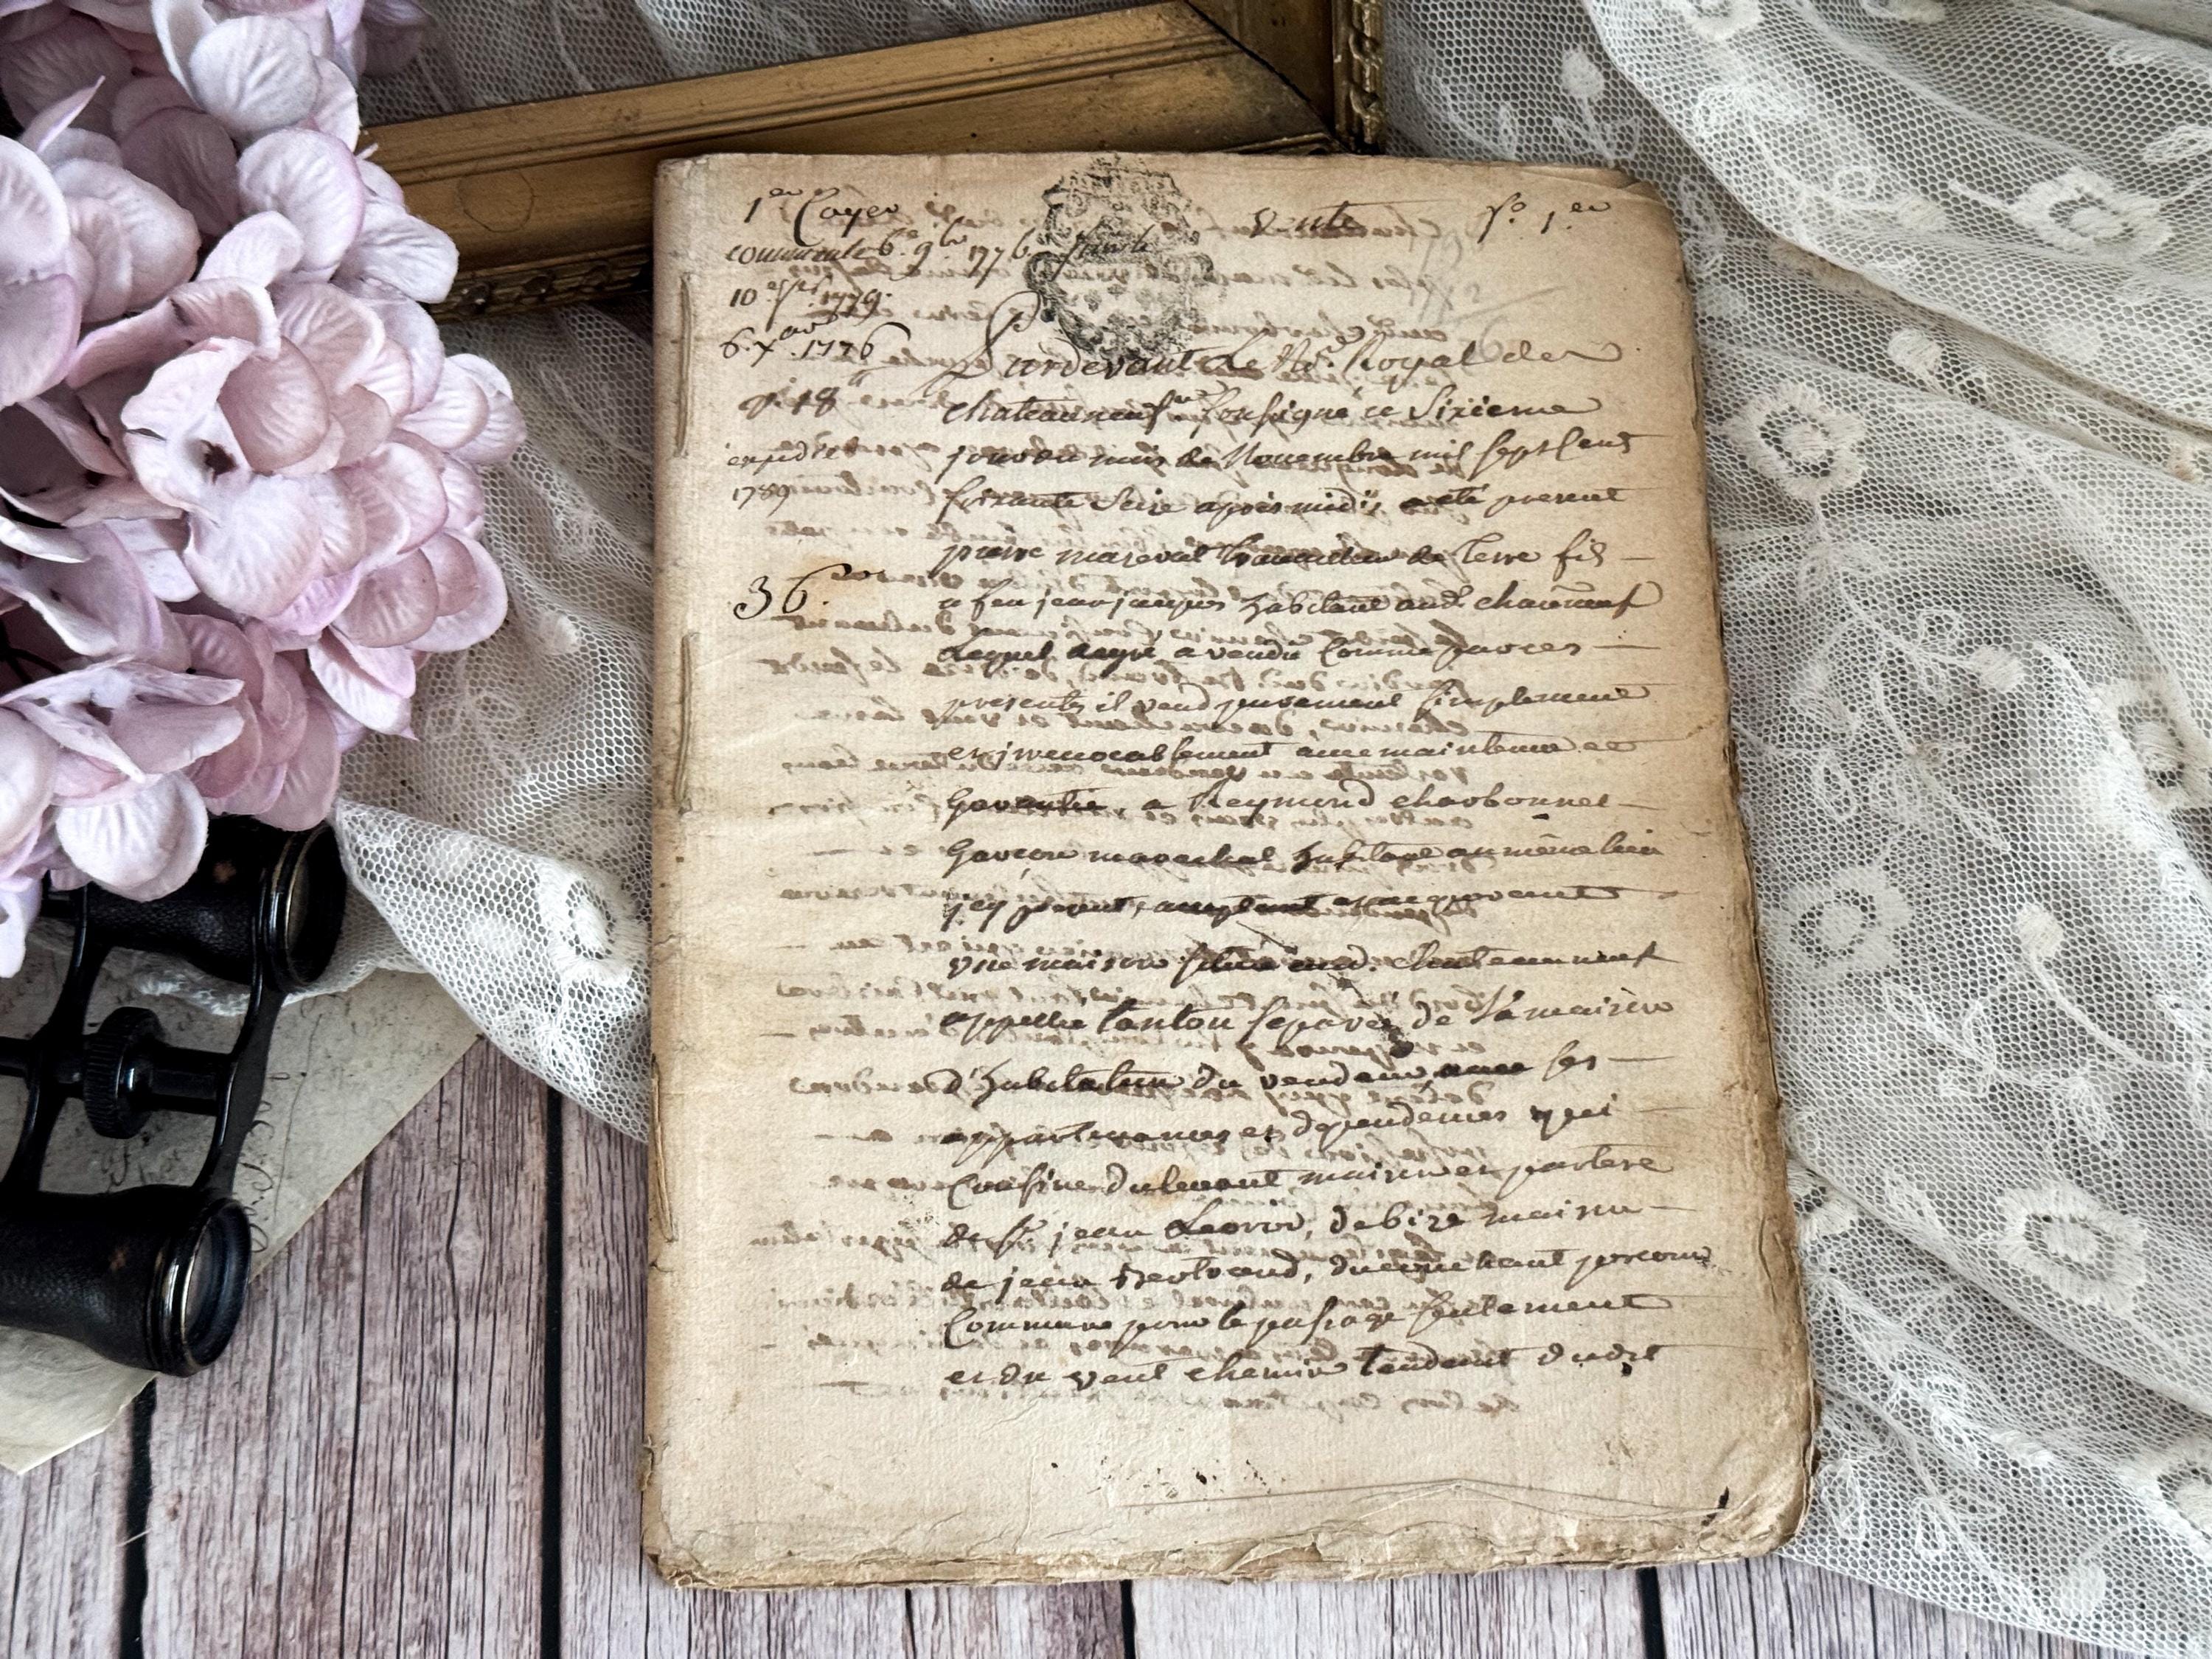 1er Cayer
vente
fo. 1er
6e 9bre 1776
10
6. Xbre 1776
1789
36
Pardevant le Nore. Royal de
chateauneuf soussigné ce Sixieme
jour du mois de Novembre mil sept Cent
soixante Seize apres midi, a eté present
pierre mazeval travailleur de terre fils
a feu jean jacques habitant aud. chauneuf
Lequel de gré a vendu Comme par ces
presentes il vend purement simplement
et irrevocablement avec maintenue et
Garantie, a Reymond charbonnel
Garcon marechal habitant au même lieu
icy present, acceptant et acquerant
Une maison situé aud. chateauneuf
appellée Lantou separée de la maison
d'habitation du vendeur avec ses
appartenances et dependences qui
Confine du levant maison et partere
de Sr jean, de bize maison
de jean Bertrand, du couchant
Commune pour le passage seulement
et du vent chemin tendant dudit